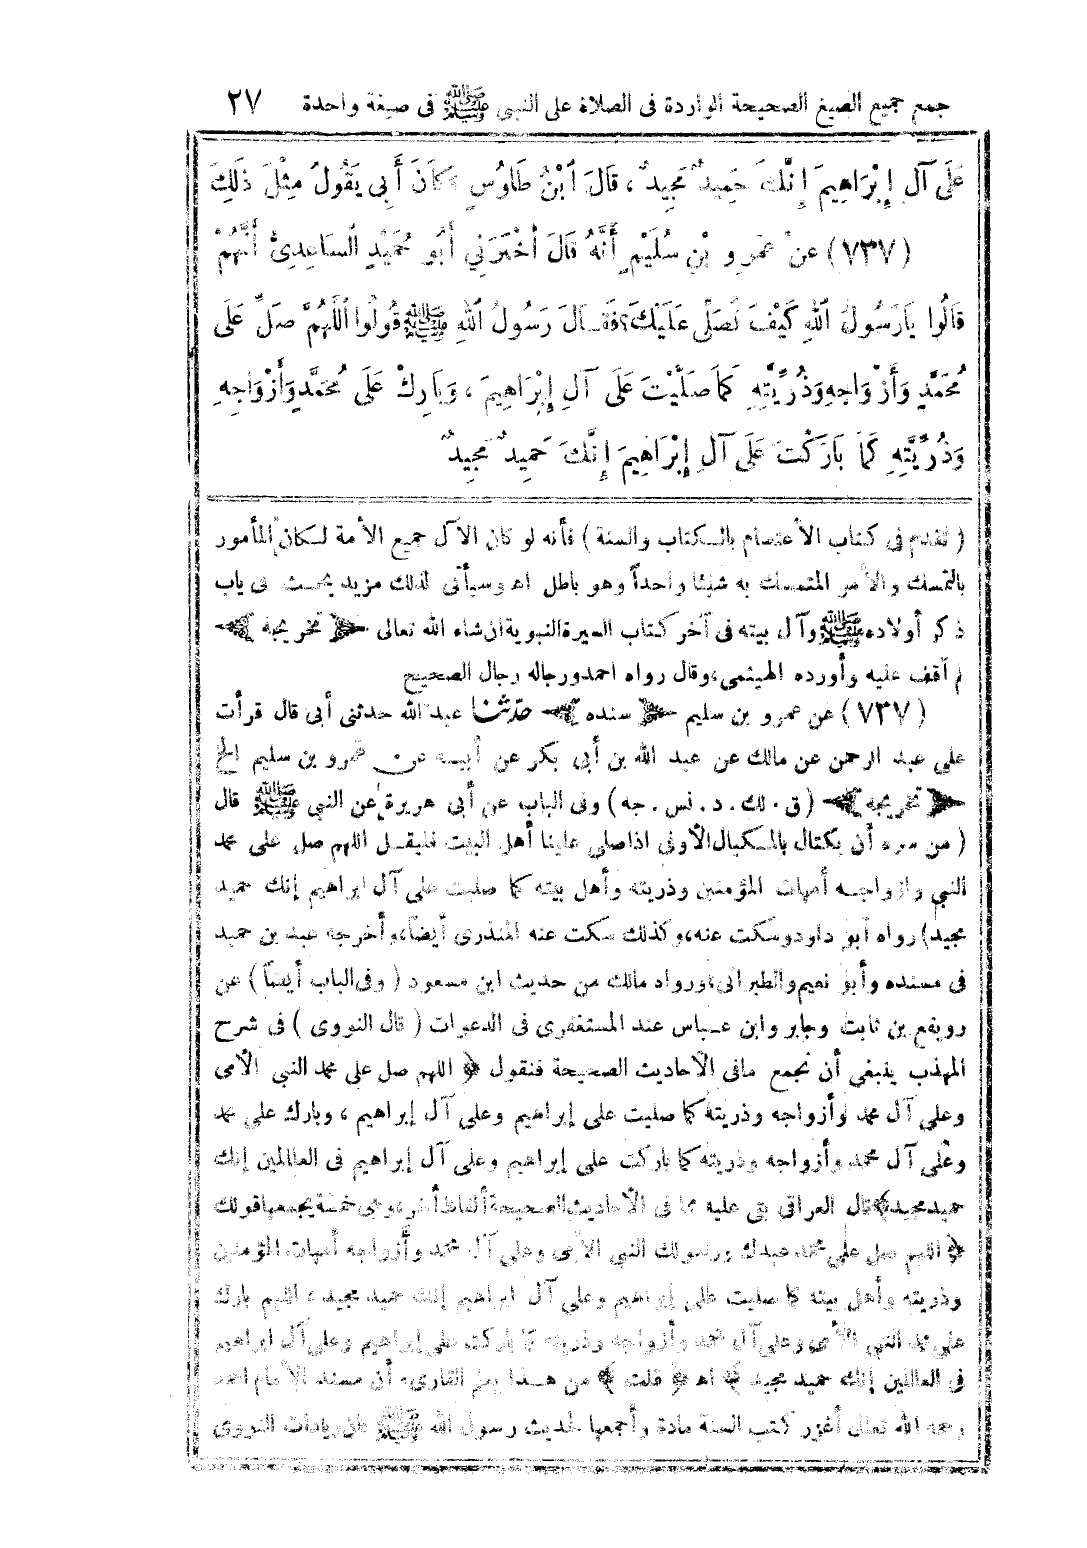 جمع جميع الصيغ الصحيحة الواردة فى الصلاة على النبى ﷺ فى صيغة واحدة ٢٧
عَلَى آلِ إِبْرَاهِيمَ إِنَّكَ حَمِيدٌ مَجِيدٌ، قَالَ ابْنُ طَاوُسٍ وَكَانَ أَبِى يَقُولُ مِثْلَ ذَلِكَ
(٧٣٧) عَنْ عَمْرِو بْنِ سُلَيْمٍ أَنَّهُ قَالَ أَخْبَرَنِي أَبُو حُمَيْدٍ السَّاعِدِىُّ أَنَّهُمْ
قَالُوا يَارَسُولَ اللهِ كَيْفَ نُصَلِّى عَلَيْكَ؟ فَقَالَ رَسُولُ اللهِ ﷺ قُولُوا اللَّهُمَّ صَلِّ عَلَى
مُحَمَّدٍ وَأَزْوَاجِهِ وَذُرِّيَّتِهِ كَمَا صَلَّيْتَ عَلَى آلِ إِبْرَاهِيمَ، وَبَارِكْ عَلَى مُحَمَّدٍ وَأَزْوَاجِهِ
وَذُرِّيَّتِهِ كَمَا بَارَكْتَ عَلَى آلِ إِبْرَاهِيمَ إِنَّكَ حَمِيدٌ مَجِيدٌ
(تقدم فى كتاب الأعتصام بالكتاب والسنة) فأنه لو كان الآل جميع الأمة لكان المأمور
بالتمسك والأمر المتمسك به شيئا واحداً وهو باطل اه وسيأتى لذلك مزيد بحث فى باب
ذكر أولاده ﷺ وآل بيته فى آخر كتاب السيرة النبوية ان شاء الله تعالى ﴿تخريجه﴾
لم أقف عليه وأورده الهيثمى، وقال رواه احمد ورجاله رجال الصحيح
(٧٣٧) عن عمرو بن سليم ﴿سنده﴾ حدّثنا عبد الله حدثنى أبى قال قرأت
على عبد الرحمن عن مالك عن عبد الله بن أبى بكر عن أبيه عن عمرو بن سليم الخ
﴿تخريجه﴾ (ق. لك. د. نس. جه) وفى الباب عن أبى هريرة عن النبى ﷺ قال
(من سره أن يكتال بالمكيال الأوفى اذا صلى علينا أهل البيت فليقل اللهم صل على محمد
النبى وازواجه أمهات المؤمنين وذريته وأهل بيته كما صليت على آل ابراهيم إنك حميد
مجيد) رواه أبو داود وسكت عنه، وكذلك سكت عنه المنذرى أيضاً، وأخرجه عبد بن حميد
فى مسنده وأبو نعيم والطبرانى، ورواه مالك من حديث ابن مسعود (وفى الباب أيضاً) عن
رويفع بن ثابت وجابر وابن عباس عند المستغفرى فى الدعوات (قال النووى) فى شرح
المهذب ينبغى أن نجمع مافى الأحاديث الصحيحة فنقول ﴿اللهم صل على محمد النبى الأمى
وعلى آل محمد وأزواجه وذريته كما صليت على إبراهيم وعلى آل إبراهيم، وبارك على محمد
وعلى آل محمد وأزواجه وذريته كما باركت على إبراهيم وعلى آل إبراهيم فى العالمين إنك
حميد مجيد﴾ قال العراقى بقى عليه مما فى الأحاديث الصحيحة ألفاظ أخر، وهى خمسة يجمعها قولك
﴿اللهم صل على محمد عبدك ورسولك النبى الأمى وعلى آل محمد وأزواجه أمهات المؤمنين
وذريته وأهل بيته كما صليت على إبراهيم وعلى آل ابراهيم إنك حميد مجيد، اللهم بارك
على محمد النبى الأمى وعلى آل محمد وأزواجه وذريته كما باركت على إبراهيم وعلى آل ابراهيم
فى العالمين إنك حميد مجيد﴾ اه ﴿قلت﴾ من هذا يعلم القارىء أن مسند الأمام احمد
رحمه الله تعالى أغزر كتب السنة مادة وأجمعها لحديث رسول الله ﷺ فان زيادات النووى